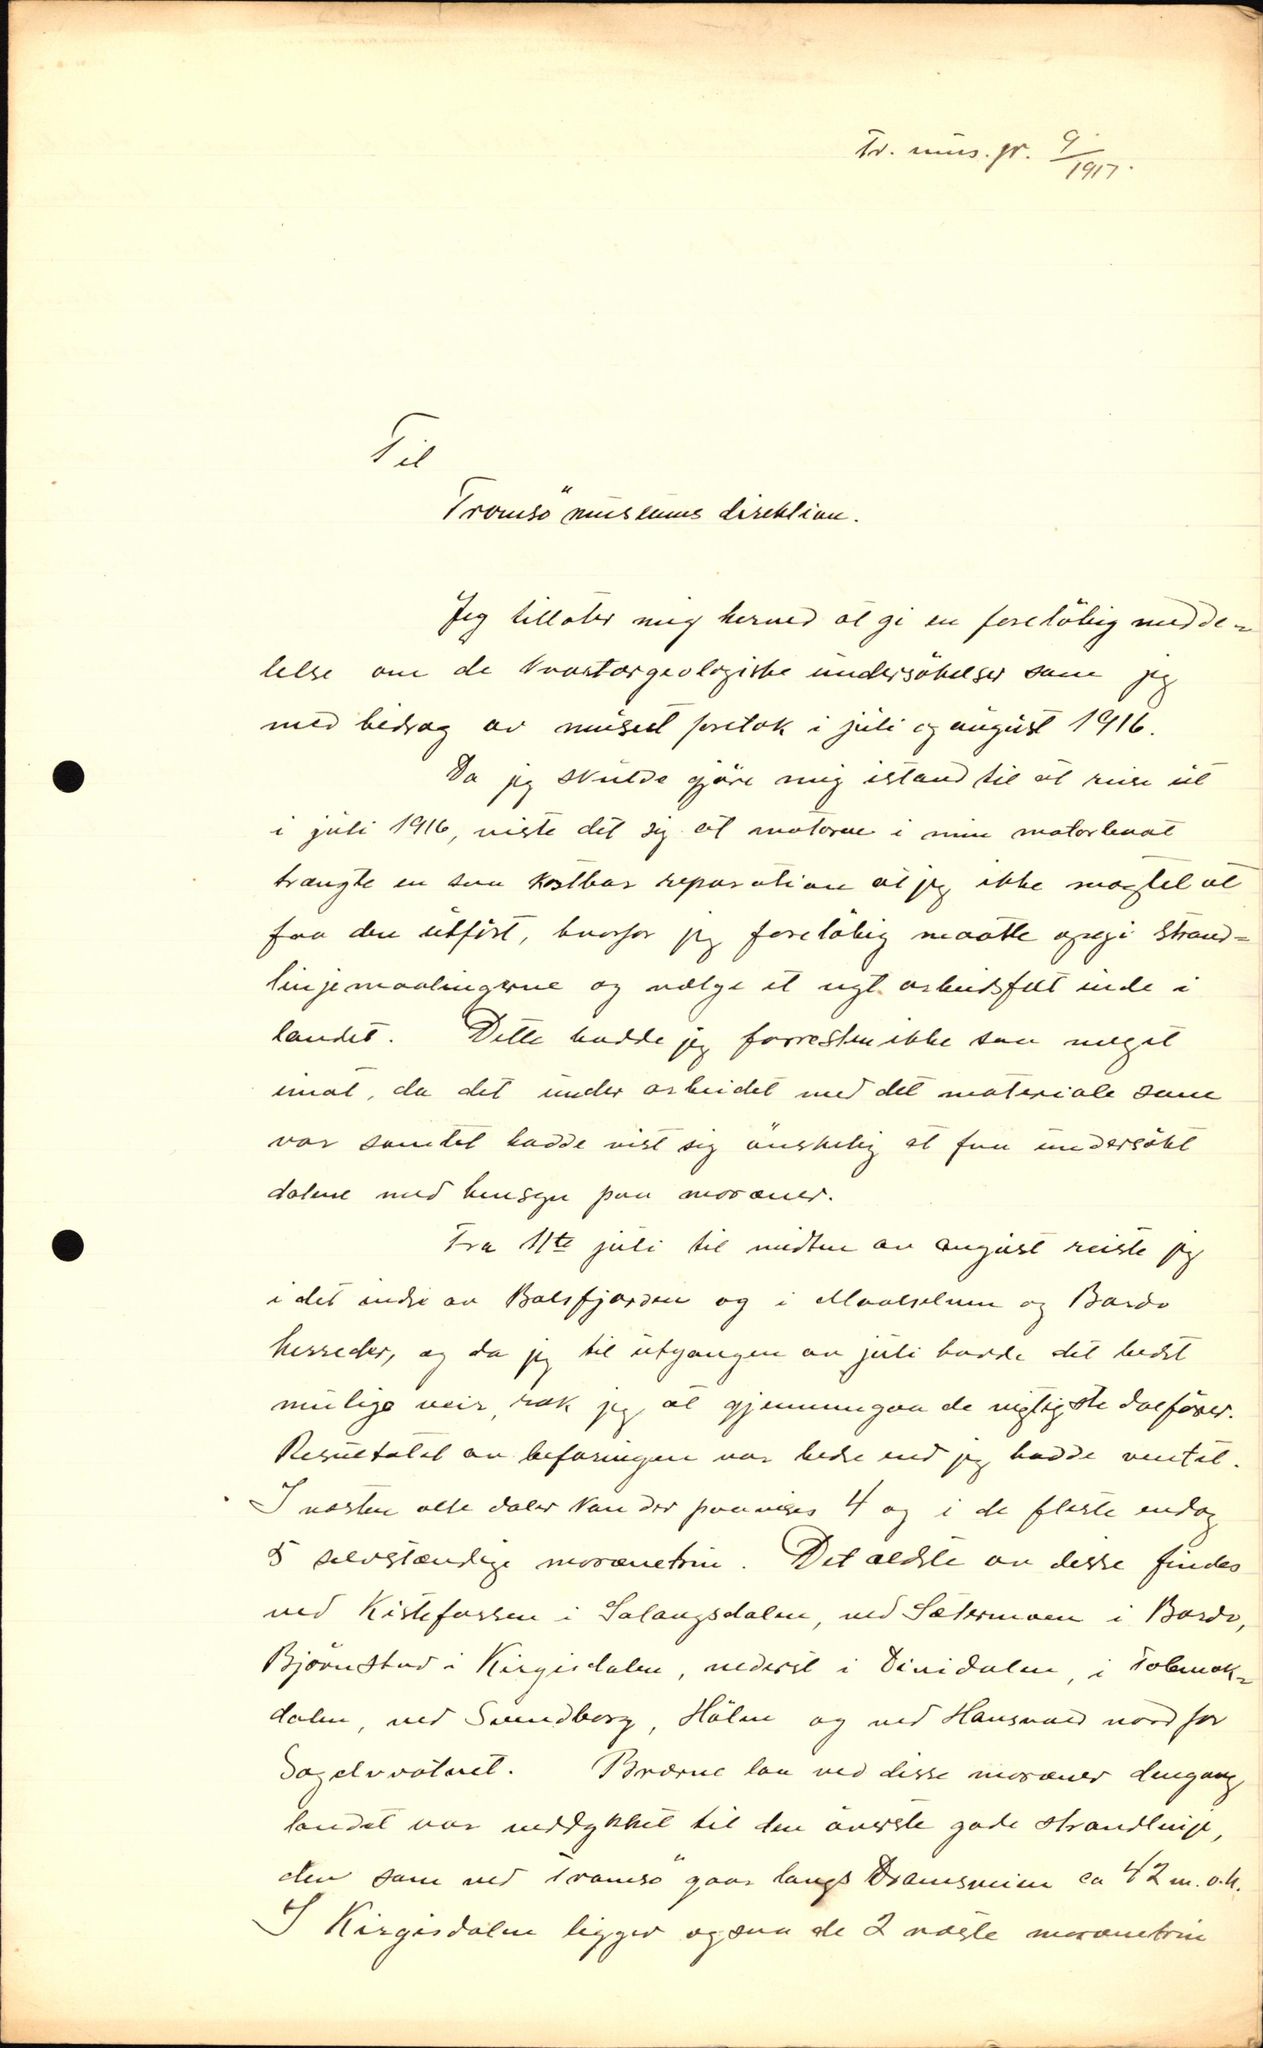 Tr. mus. jr. 9/1917.
Til
Tromsö museums direktion.
Jeg tillater mig herved at gi en foreløbig medde-
lelse om de kvartærgeologiske undersökelser som jeg
med bidrag av museet foretok i juli og august 1916.
Da jeg skulde gjöre mig istand til at reise ut
i juli 1916, viste det sig at motoren i min motorbaat
trængte en saa kostbar reparation at jeg ikke magtet at
faa den utfört, hvorfor jeg foreløbig maatte opgi strand-
linjemaalingerne og vælge et nyt arbeidsfelt inde i
landet. Dette hadde jeg forresten ikke saa meget
imot, da det under arbeidet med det materiale som
var samlet hadde vist sig önskelig at faa undersökt
dalene med hensyn paa moræner.
Fra 11te juli til midten av august reiste jeg
i det indre av Balsfjorden og i Maalselven og Bardo
herreder, og da jeg til utgangen av juli hadde det bedst
mulige veir, rak jeg at gjennemgaa de vigtigste dalförer.
Resultatet av befaringen var bedre end jeg hadde ventet.
I næsten alle daler kan der paavises 4 og i de fleste endog
5 selvstændige morænetrin. Det ældste av disse findes
ved Kistefossen i Salangsdalen, ved Sætermoen i Bardo,
Björnstad i Kirgisdalen, nederst i Dividalen, i Tobmak-
dalen, ved Sundborg, Hölen og ved Hansvold nord for
Sagelvvatnet. Bræerne laa ved disse moræner dengang
landet var neddykket til den överste gode strandlinje,
den som ved Tromsö gaar langs Dramsveien ca 42 m.o.h.
I Kirgisdalen ligger ogsaa de 2 næste morænetrin